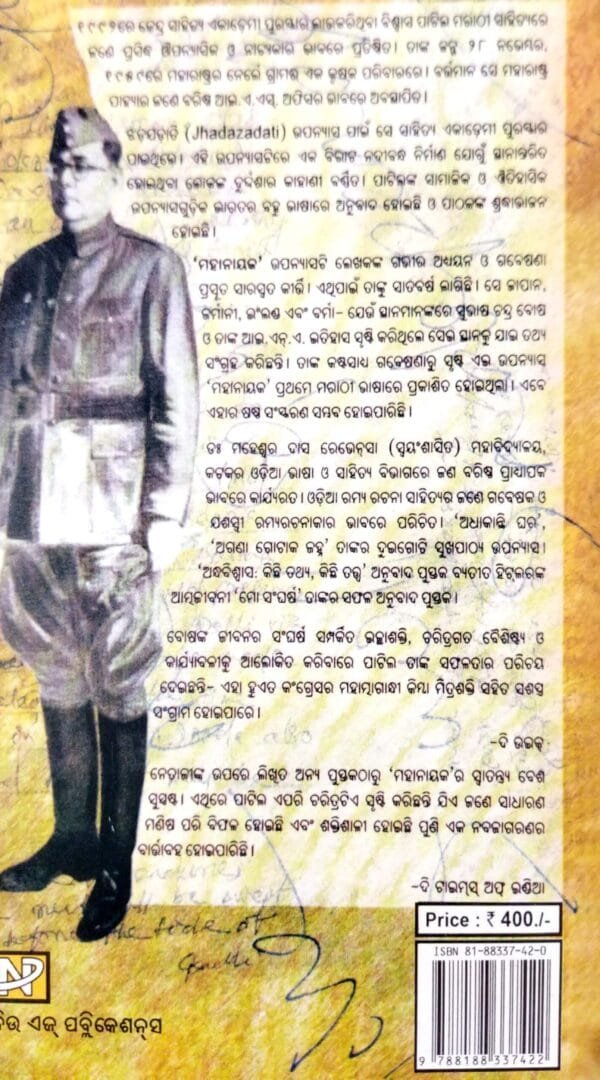 ୧୯୯୨ରେ କେନ୍ଦ୍ର ସାହିତ୍ୟ ଏକାଡ଼େମୀ ପୁରସ୍କାର ଲାଭକରିଥିବା ବିଶ୍ୱାସ ପାଟିଲ ମରାଠୀ ସାହିତ୍ୟରେ
ଜଣେ ପ୍ରସିଦ୍ଧ ଔପନ୍ୟାସିକ ଓ ନାଟ୍ୟକାର ଭାବରେ ପ୍ରତିଷ୍ଠିତ। ତାଙ୍କ ଜନ୍ମ ୨୮ ନଭେମ୍ବର,
୧୯୫୯ରେ ମହାରାଷ୍ଟ୍ରର ନେର୍ଲେ ଗ୍ରାମର ଏକ କୃଷକ ପରିବାରରେ। ବର୍ତ୍ତମାନ ସେ ମହାରାଷ୍ଟ୍ର
ପାହ୍ୟାର ଜଣେ ବରିଷ୍ଠ ଆଇ.ଏ.ଏସ୍. ଅଫିସର ଭାବରେ ଅବସ୍ଥାପିତ।
ଝଡ଼ଝଡ଼ାଡ଼ି (Jhadazadati) ଉପନ୍ୟାସ ପାଇଁ ସେ ସାହିତ୍ୟ ଏକାଡ଼େମୀ ପୁରସ୍କାର
ପାଇଥିଲେ। ଏହି ଉପନ୍ୟାସଟିରେ ଏକ ବିରାଟ ନଦୀବନ୍ଧ ନିର୍ମାଣ ଯୋଗୁଁ ସ୍ଥାନାନ୍ତରିତ
ହୋଇଥିବା ଲୋକଙ୍କ ଦୁର୍ଦ୍ଦଶାର କାହାଣୀ ବର୍ଣ୍ଣିତ। ପାଟିଲଙ୍କ ସାମାଜିକ ଓ ଐତିହାସିକ
ଉପନ୍ୟାସଗୁଡ଼ିକ ଭାରତର ବହୁ ଭାଷାରେ ଅନୁବାଦ ହୋଇଛି ଓ ପାଠକଙ୍କ ଶ୍ରଦ୍ଧାଭାଜନ
ହୋଇଛି।
‘ମହାନାୟକ’ ଉପନ୍ୟାସଟି ଲେଖକଙ୍କ ଗଭୀର ଅଧ୍ୟୟନ ଓ ଗବେଷଣା
ପ୍ରସୂତ ସାରସ୍ୱତ କୀର୍ତ୍ତି। ଏଥିପାଇଁ ତାଙ୍କୁ ସାତବର୍ଷ ଲାଗିଛି। ସେ ଜାପାନ,
ଜର୍ମାନୀ, ଇଂଲଣ୍ଡ ଏବଂ ବର୍ମା– ଯେଉଁ ସ୍ଥାନମାନଙ୍କରେ ସୁଭାଷ ଚନ୍ଦ୍ର ବୋଷ
ଓ ତାଙ୍କ ଆଇ.ଏନ୍.ଏ. ଇତିହାସ ସୃଷ୍ଟି କରିଥିଲେ ସେଇ ସ୍ଥାନକୁ ଯାଇ ତଥ୍ୟ
ସଂଗ୍ରହ କରିଛନ୍ତି। ତାଙ୍କ କଷ୍ଟସାଧ୍ୟ ଗବେଷଣାରୁ ସୃଷ୍ଟ ଏଇ ଉପନ୍ୟାସ
‘ମହାନାୟକ’ ପ୍ରଥମେ ମରାଠୀ ଭାଷାରେ ପ୍ରକାଶିତ ହୋଇଥିଲା। ଏବେ
ଏହାର ଷଷ୍ଠ ସଂସ୍କରଣ ସମ୍ଭବ ହୋଇପାରିଛି।
ଡଃ ମହେଶ୍ୱର ଦାସ ରେଭେନ୍ସା (ସ୍ୱୟଂଶାସିତ) ମହାବିଦ୍ୟାଳୟ,
କଟକର ଓଡ଼ିଆ ଭାଷା ଓ ସାହିତ୍ୟ ବିଭାଗରେ ଜଣେ ବରିଷ୍ଠ ପ୍ରାଧ୍ୟାପକ
ଭାବରେ କାର୍ଯ୍ୟରତ। ଓଡ଼ିଆ ରମ୍ୟ ରଚନା ସାହିତ୍ୟର ଜଣେ ଗବେଷକ ଓ
ଯଶସ୍ୱୀ ରମ୍ୟରଚନାକାର ଭାବରେ ପରିଚିତ। ‘ଅଧାକାନ୍ତି ଘର’,
‘ଅଗଣା ଗୋଟାକ ଜହ୍ନ’ ତାଙ୍କର ଦୁଇଗୋଟି ସୁଖପାଠ୍ୟ ଉପନ୍ୟାସ।
‘ଅନ୍ଧବିଶ୍ୱାସ: କିଛି ତଥ୍ୟ, କିଛି ତତ୍ତ୍ୱ’ ଅନୁବାଦ ପୁସ୍ତକ ବ୍ୟତୀତ ହିଟ୍‌ଲରଙ୍କ
ଆତ୍ମଜୀବନୀ ‘ମୋ ସଂଘର୍ଷ’ ତାଙ୍କର ସଫଳ ଅନୁବାଦ ପୁସ୍ତକ।
ବୋଷଙ୍କ ଜୀବନର ସଂଘର୍ଷ ସମ୍ପର୍କିତ ଇଚ୍ଛାଶକ୍ତି, ଚରିତ୍ରଗତ ବୈଶିଷ୍ଟ୍ୟ ଓ
କାର୍ଯ୍ୟାବଳୀକୁ ଆଲୋକିତ କରିବାରେ ପାଟିଲ ତାଙ୍କ ସଫଳତାର ପରିଚୟ
ଦେଇଛନ୍ତି– ଏହା ହୁଏତ କଂଗ୍ରେସର ମହାତ୍ମାଗାନ୍ଧୀ କିମ୍ବା ମିତ୍ରଶକ୍ତି ସହିତ ସଶସ୍ତ୍ର
ସଂଗ୍ରାମ ହୋଇପାରେ।
–ଦି ଉଇକ୍
ନେତାଜୀଙ୍କ ଉପରେ ଲିଖିତ ଅନ୍ୟ ପୁସ୍ତକଠାରୁ ‘ମହାନାୟକ’ର ସ୍ୱାତନ୍ତ୍ର୍ୟ ବେଶ୍
ସୁସ୍ପଷ୍ଟ। ଏଥିରେ ପାଟିଲ ଏପରି ଚରିତ୍ରଟିଏ ସୃଷ୍ଟି କରିଛନ୍ତି ଯିଏ ଜଣେ ସାଧାରଣ
ମଣିଷ ପରି ବିଫଳ ହୋଇଛି ଏବଂ ଶକ୍ତିଶାଳୀ ହୋଇଛି ପୁଣି ଏକ ନବଜାଗରଣର
ବାର୍ତ୍ତାବହ ହୋଇପାରିଛି।
–ଦି ଟାଇମ୍‌ସ୍ ଅଫ୍ ଇଣ୍ଡିଆ
Price : ₹ 400./-
ISBN 81-88337-42-0
9 788188 337422
Gandhi
N
ନିଉ ଏଜ୍ ପବ୍ଲିକେଶନ୍‌ସ